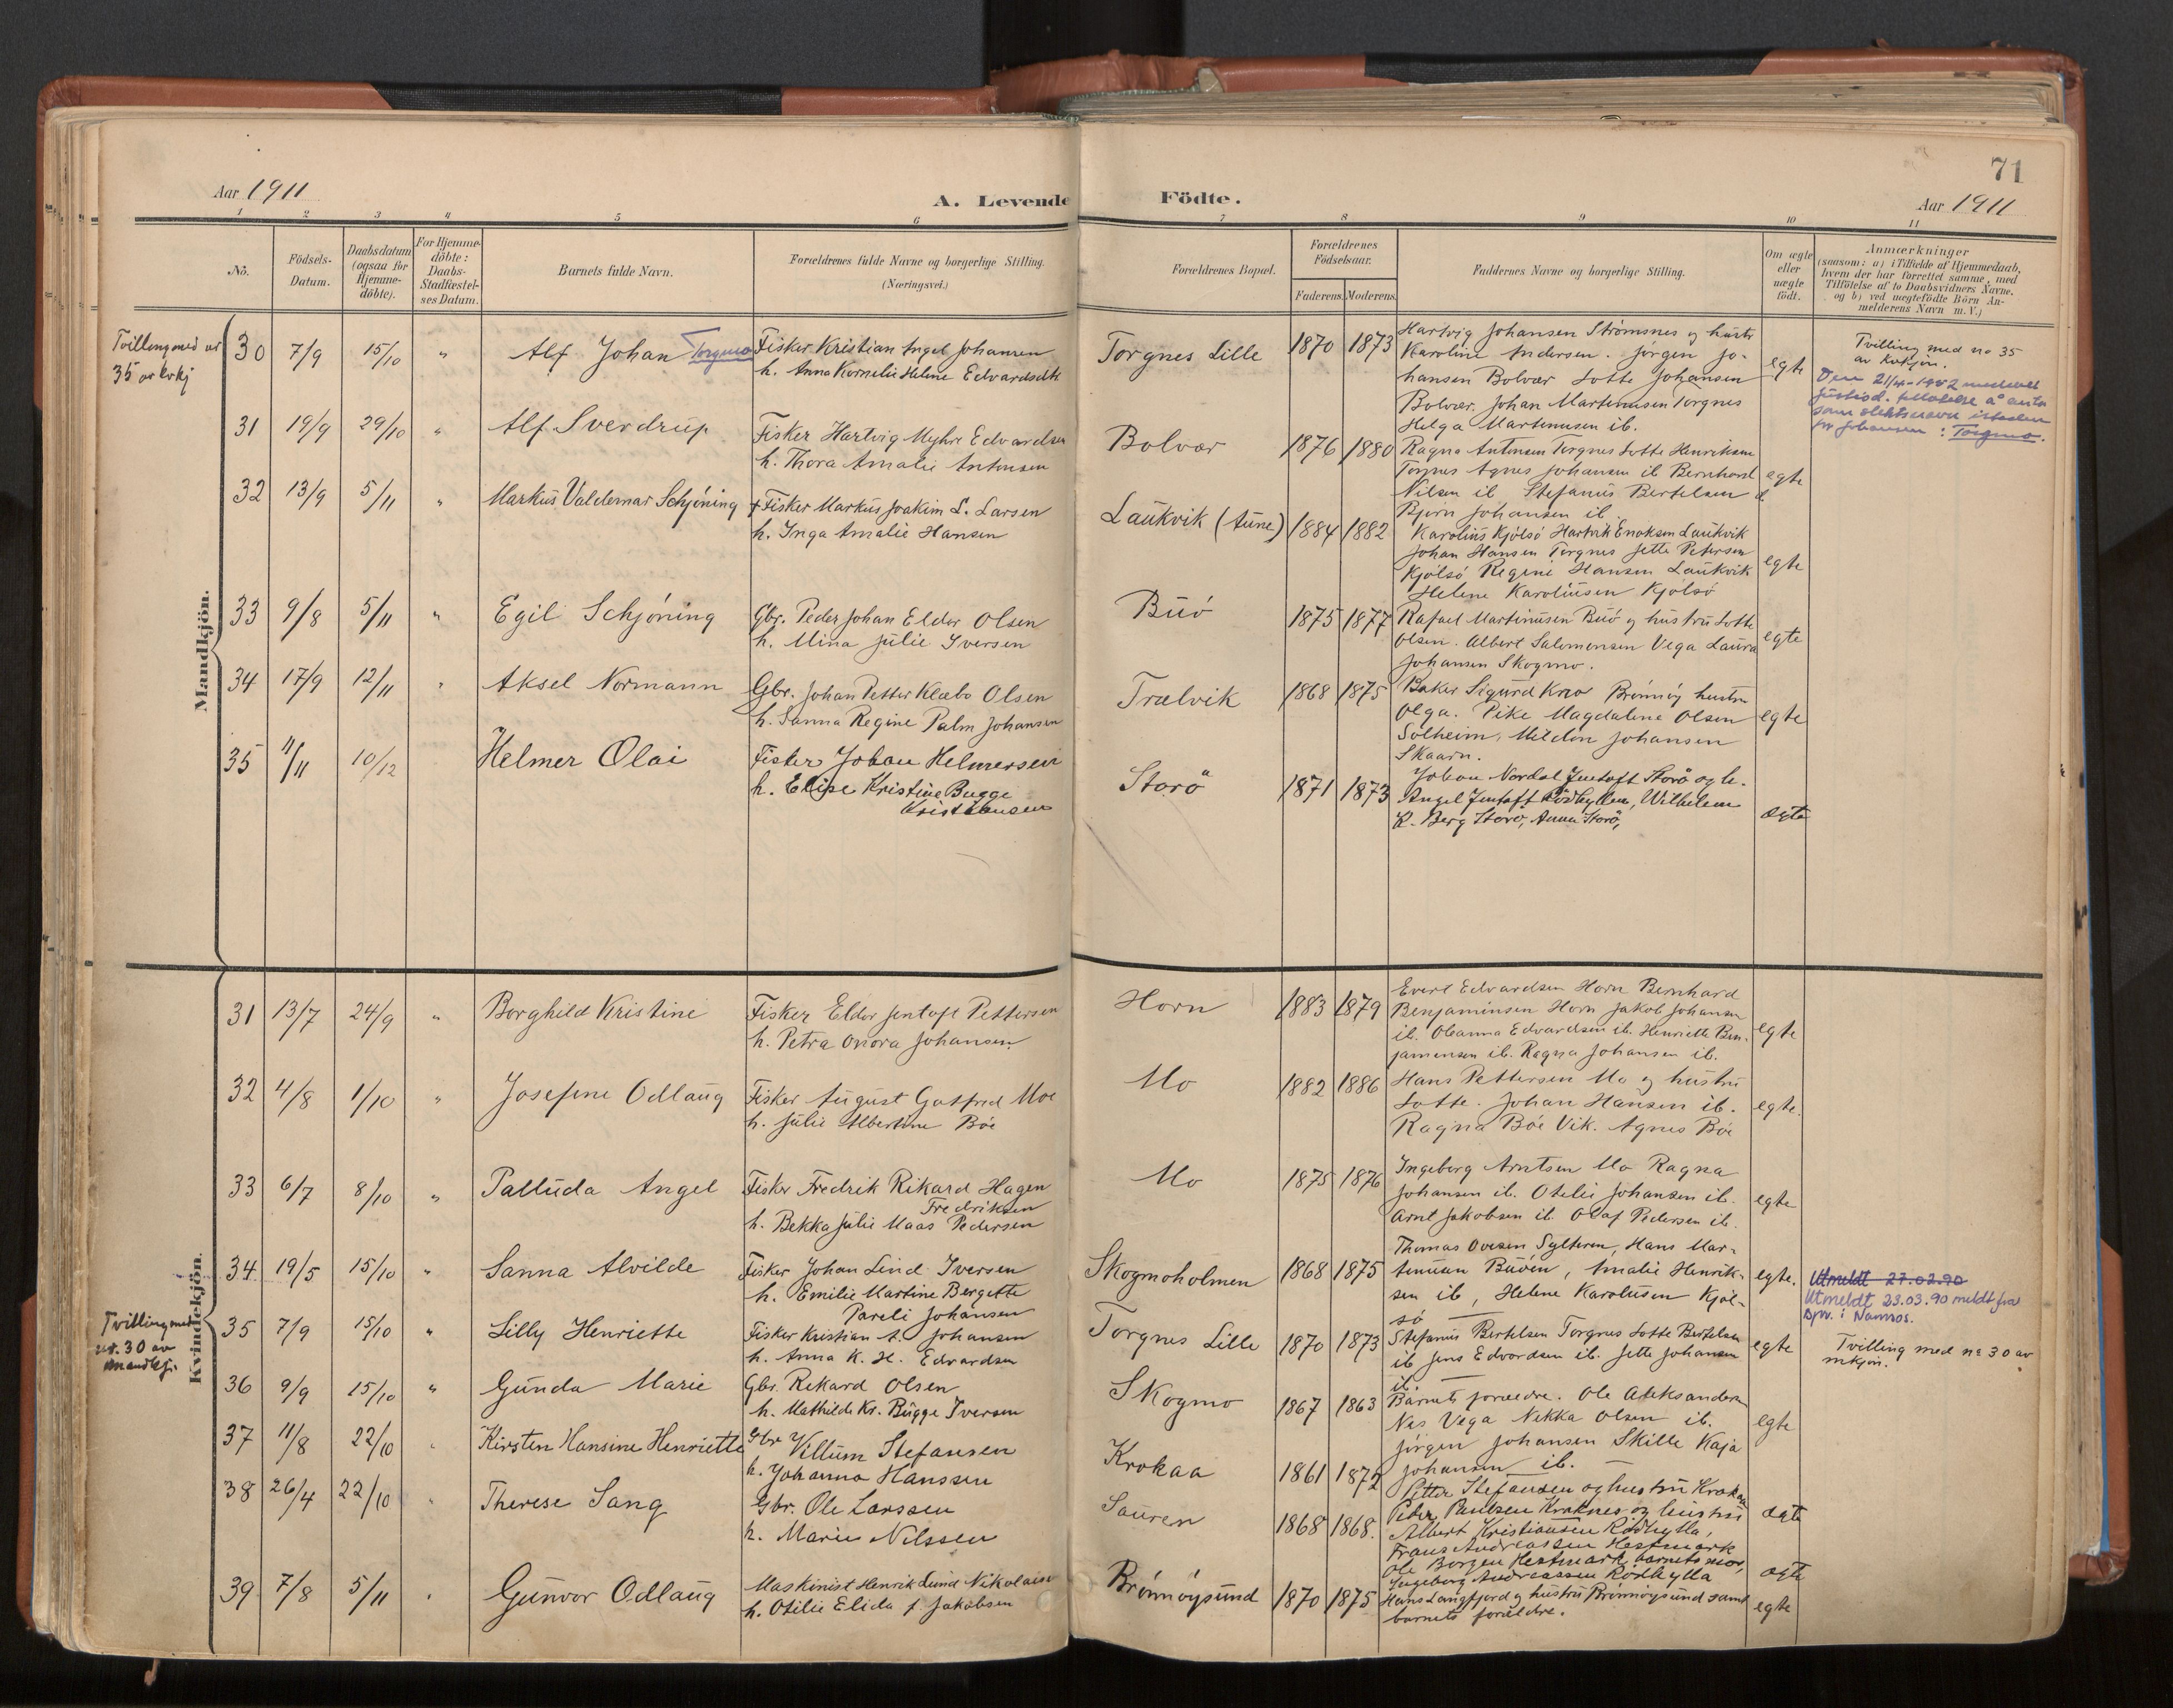 71
Aar 1911
A. Levende Födte.
Aar 1911
1 2 3 4 5 6 7 8 9 10 11
No.
Födsels-
Datum.
Daabsdatum
(ogsaa for
Hjemme-
döbte).
For Hjemme-
döbte:
Daabs-
Stadfæstel-
ses Datum.
Barnets fulde Navn.
Forældrenes fulde Navne og borgerlige Stilling.
(Næringsvei.)
Forældrenes Bopæl.
Forældrenes
Födselsaar.
Faderens. Moderens.
Faddernes Navne og borgerlige Stilling.
Om ægte
eller
uægte
födt.
Anmærkninger
(saasom: a) i Tilfælde af Hjemmedaab,
hvem der har forrettet samme, med
Tilföielse af to Daabsvidners Navne.
og b) ved uægtefödte Börn An-
melderens Navn m. V.)
Mandkjön.
Tvilling med nr
35 av kvkj
30 7/9 15/10 " Alf Johan Torgmo
Fisker Kristian Angel Johansen
h. Anna Kornelie Helene Edvardsdtr
Torgnes Lille 1870 1873
Hartvig Johansen Strömsnes og hustr
Karoline Andersen. Jörgen Jo-
hansen Bolvær Lotte Johansen
Bolvær. Johan Martinusen Torgnes
Helga Martinusen ib.
egte
Tvilling med no 35
av kvkjön.
Den 21/4-1932 meddelt
justisd. tillatelse å anta
som slektsnavn isteden
for Johansen: Torgmo.
31 19/9 29/10 " Alf Sverdrup
Fisker Hartvig Myhre Edvardsen
h. Thora Amalie Antonsen
Bolvær 1876 1880
Ragna Antonsen Torgnes Lotte Henriksen
Torgnes Agnes Johansen ib Bernhard
Nilsen ib Stefanus Bertelsen
Bjørn Johansen ib
egte
32 13/9 5/11 " Markus Valdemar Schjöning
+ Fisker Markus Joakim L. Larsen
h. Inga Amalie Hansen
Laukvik (tune) 1884 1882
Karolius Kjölsö Hartvik Enoksen Laukvik
Johan Hansen Torgnes Jette Petersen
Kjölsö Regine Hansen Laukvik
Helene Karoliusen Kjölsö
egte
33 9/8 5/11 " Egil Schjöning
Gbr. Peder Johan Eldor Olsen
h. Mina Julie Iversen
Buö 1875 1877
Rafael Martinusen Buö og hustru Lotte
Olsen. Albert Salomonsen Vega Laura
Johansen Skogmo.
egte
34 17/9 12/11 " Aksel Normann
Gbr. Johan Petter Klæbo Olsen
h. Sanna Regine Palm Johansen
Trælvik 1868 1875
Baker Sigurd Kræ Brönnöy hustru
Olga. Pike Magdalene Olsen
Solheim, Johansen
Skaarn.
egte
35 11/11 10/12 Helmer Olai
Fisker Johan Helmersen
h. Elise Kristine Bugge
Kristiansen
Storö 1871 1873
Johan Nordal Jentoft Storö og h.
Angel Jentoft Rödhyllen, Wilhelm
K. Berg Storö, Anna Storö,
ægte
Kvindekjön.
31 13/7 24/9 " Borghild Kristine
Fisker Eldor Jentoft Pettersen
h. Petra Onora Johansen.
Horn 1883 1879
Evert Edvardsen Horn Bernhard
Benjaminsen Horn Jakob Johansen
ib. Oleanna Edvardsen ib. Henriette Ben-
jaminsen ib. Ragna Johansen ib.
egte
32 4/8 1/10 " Josefine Odlaug
Fisker August Gotfred Moe
h. Julie Albertine Böe
Mo 1882 1886
Hans Pettersen Mo og hustru
Lotte. Johan Hansen ib.
Ragna Böe Vik. Agnes Böe
egte.
33 6/7 8/10 " Palluda Angel
Fisker Fredrik Rikard Hagen
Fredriksen
h. Bekka Julie Maas Pedersen
Mo 1875 1876
Ingeborg Arntsen Mo Ragna
Johansen ib. Otelie Johansen ib.
Arnt Jakobsen ib. Olaf Pedersen ib.
egte
34. 19/5 15/10 " Sanna Alvilde
Fisker Johan Lind Iversen
h. Emilie Martine Bergette
Pareli Johansen
Skogmoholmen 1868 1875
Thomas Ovesen Sylteren, Hans Mar-
tinusen Buöen, Amalie Henrik-
sen ib, Helene Karolusen Kjöl-
sö
egte.
Utmeldt 27.02.90
Utmeldt 23.03.90 meldt fra
spr. i Namsos.
Tvilling med
nr. 30 av
mandkj.
35 7/9 15/10 " Lilly Henriette
Fisker Kristian A. Johansen
h. Anna K. H. Edvardsen
Torgnes Lille 1870 1873
Stefanus Bertelsen Torgnes Lotte Bertelsen
ib Jens Edvardsen ib. Jette Johansen
ib.
egte
Tvilling med no 30 av
mkjön.
36 9/9 15/10 " Gunda Marie
Gbr. Rikard Olsen
h. Mathilde Kr. Bugge Iversen
Skogmo 1867 1863
Barnets forældre. Ole Aleksandersen
Nes Vega Nekka Olsen ib.
Jörgen Johansen Skille Kaja
Johansen ib.
egte
37 11/8 22/10 " Kirsten Hansine Henriette
Gbr Villum Stefansen
h. Johanna Hanssen
Krokaa 1861 1872
Petter Stefansen og hustru Krokaa
Peder Paulsen Kraknes og hustru
Albert Kristiansen Rödhylla,
ægte
38 26/4 22/10 " Therese Sang
Gbr. Ole Larssen
h. Marie Nilssen
Sauren 1868 1868.
Frans Andreassen Hestmark
Ole Borgen Hestmark, barnets mor,
Ingeborg Andreassen Rödhylla
ægte
39 7/8 5/11 " Gunvor Odlaug
Maskinist Henrik Lund Nikolaisen
h. Otilie Elida f. Jakobsen
Brönnöysund 1870 1875
Hans Langfjord og hustru Brönnöysund samt
barnets forældre.
egte